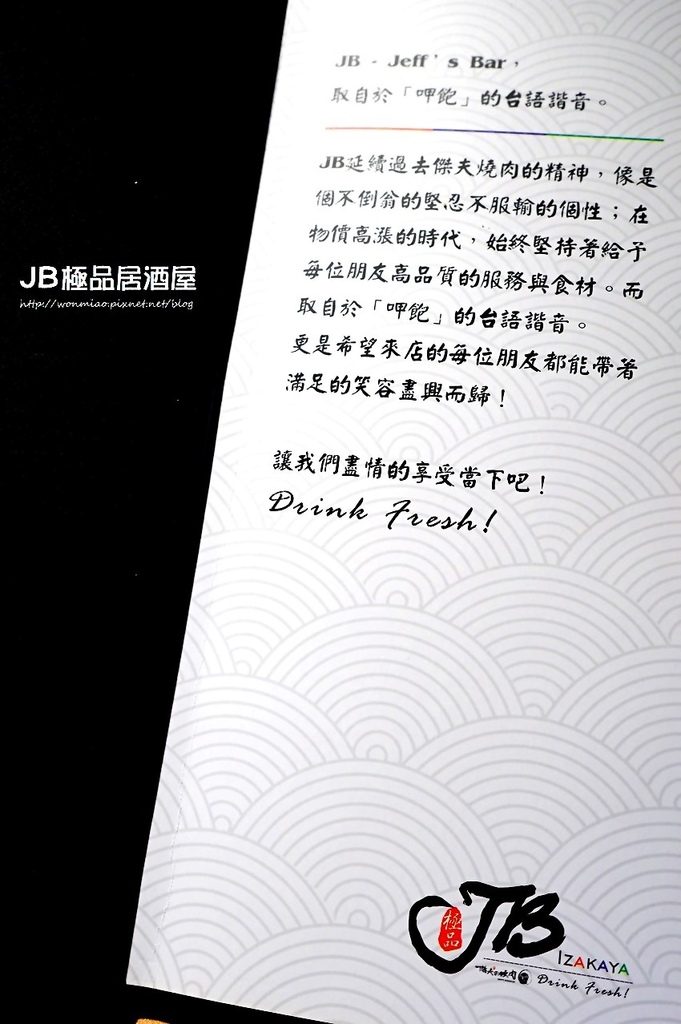 JB - Jeff's Bar，
取自於「呷飽」的台語諧音。
JB延續過去傑夫燒肉的精神，像是
個不倒翁的堅忍不服輸的個性；在
物價高漲的時代，始終堅持著給予
每位朋友高品質的服務與食材。而
取自於「呷飽」的台語諧音。
更是希望來店的每位朋友都能帶著
滿足的笑容盡興而歸！
讓我們盡情的享受當下吧！
Drink Fresh!
JB極品居酒屋
http://wonmiao.pixnet.net/blog
JB
極品
IZAKAYA
Drink Fresh!